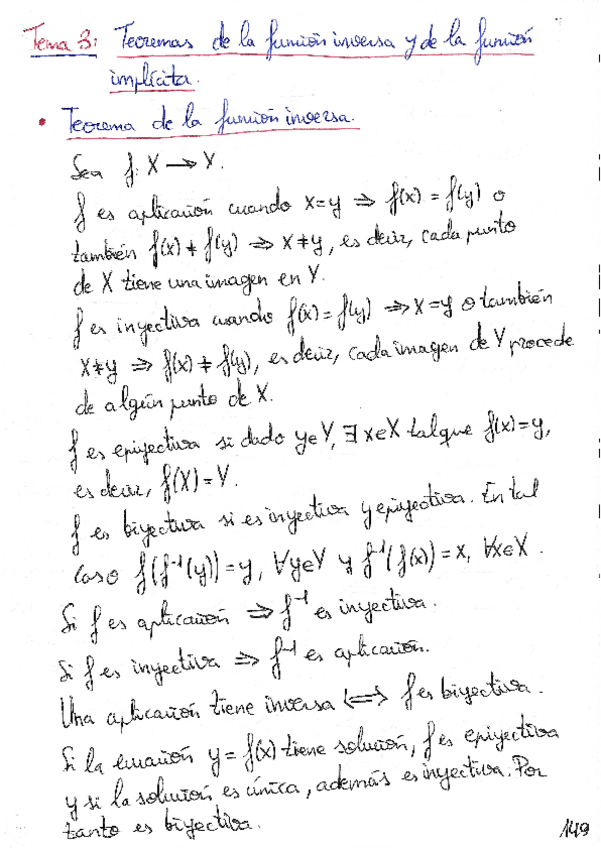 Tema 3: Teoremas de la función inversa y de la función
implícita.
• Teorema de la función inversa.
Sea f: X → Y.
f es aplicación cuando x=y ⇒ f(x) = f(y) o
también f(x) ≠ f(y) ⇒ x≠y, es decir, cada punto
de X tiene una imagen en Y.
f es inyectiva cuando f(x)=f(y) ⇒ x=y o también
x≠y ⇒ f(x) ≠ f(y), es decir, cada imagen de Y procede
de algún punto de X.
f es epiyectiva si dado y∈Y, ∃ x∈X tal que f(x)=y,
es decir, f(X)=Y.
f es biyectiva si es inyectiva y epiyectiva. En tal
caso f(f⁻¹(y))=y, ∀y∈Y y f⁻¹(f(x))=x, ∀x∈X.
Si f es aplicación ⇒ f⁻¹ es inyectiva.
Si f es inyectiva ⇒ f⁻¹ es aplicación.
Una aplicación tiene inversa ⟺ f es biyectiva.
Si la ecuación y=f(x) tiene solución, f es epiyectiva
y si la solución es única, además es inyectiva. Por
tanto es biyectiva.
149